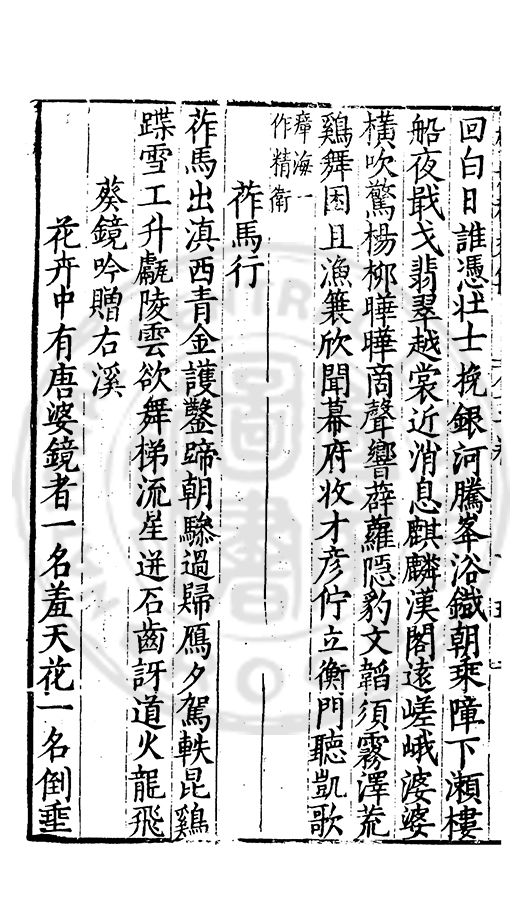 回白日誰憑壯士挽銀河騰峯浴鐵朝乘障下瀨樓
船夜戢戈翡翠越裳近消息麒麟漢閣遠嵯峨婆婆
橫吹驚楊柳曄曄商聲響薜蘿隱豹文韜須霧澤荒
鷄舞困且漁簑欣聞幕府收才彥佇立衡門聽凱歌
瘴海一
作精衛
莋馬行
莋馬出滇西青金護鑿蹄朝驂過歸鴈夕駕軼昆鷄
蹀雪工升甗陵雲欲舞梯流星迸石齒訝道火龍飛
葵鏡吟贈右溪
花卉中有唐婆鏡者一名羞天花一名倒垂